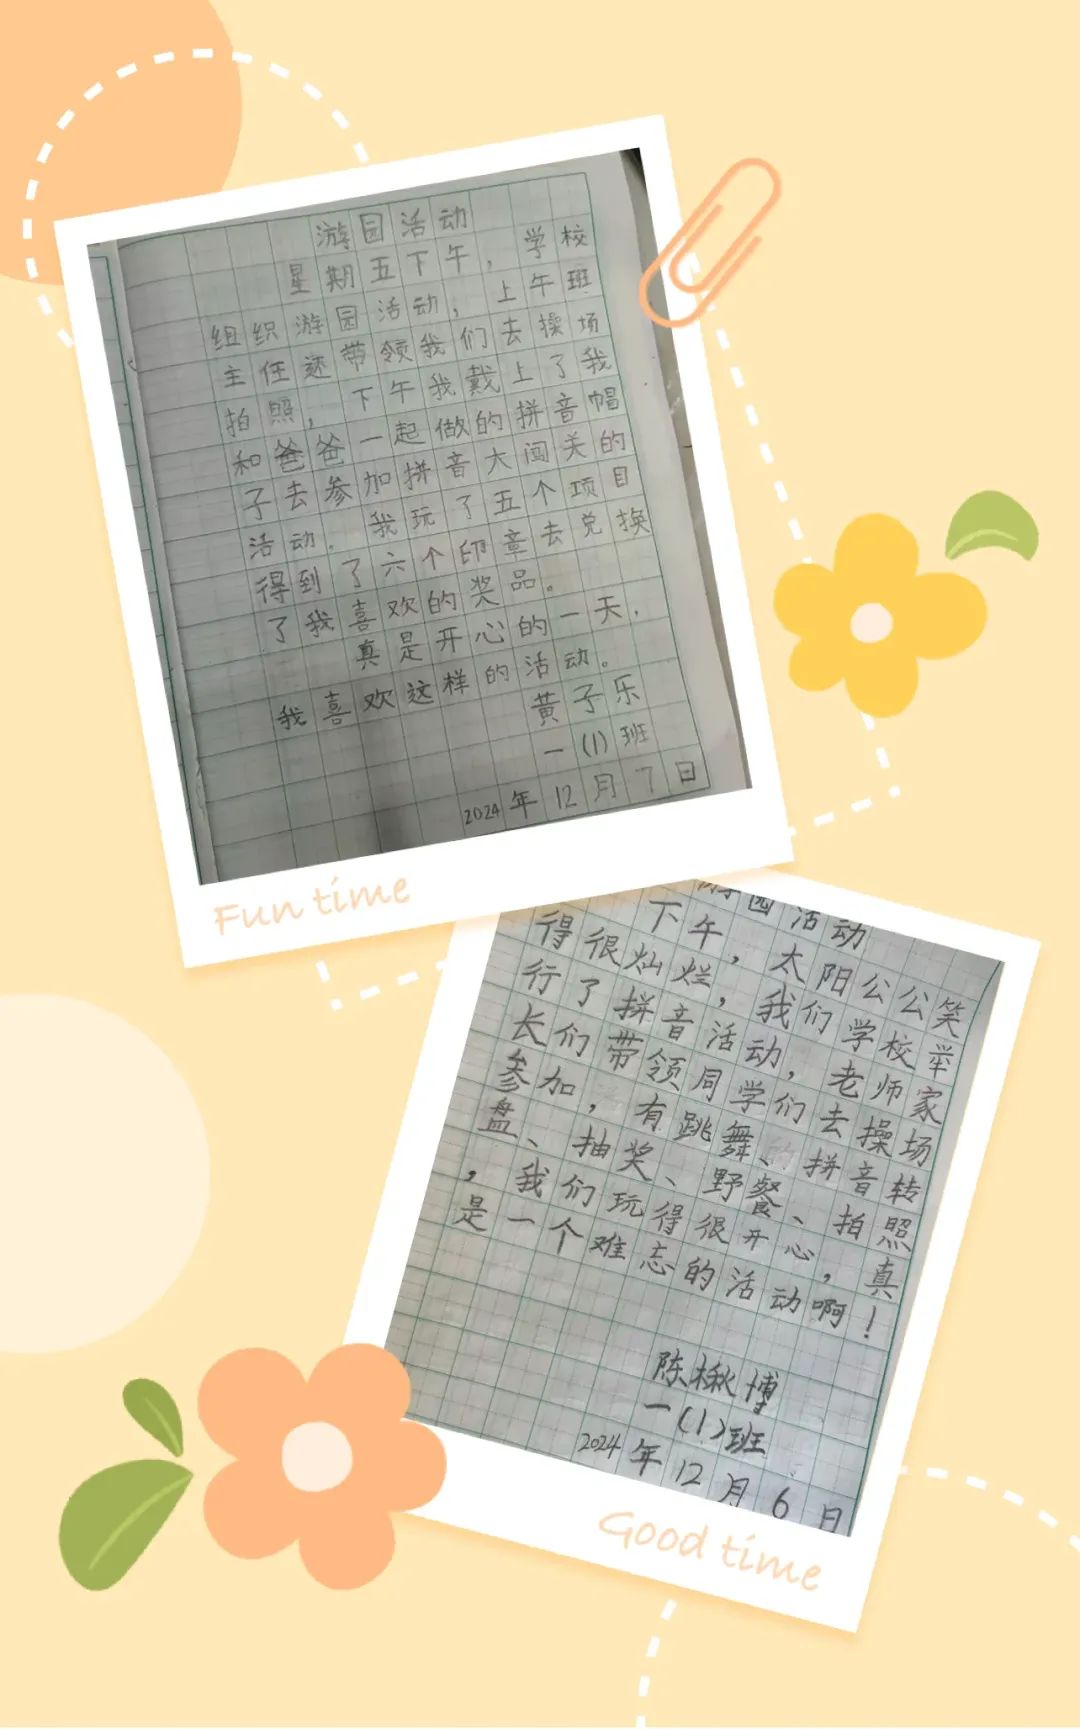 游园活动
星期五下午，学校
组织游园活动，上午班
主任还带领我们去操场
拍照，下午我戴上了我
和爸爸一起做的拼音帽
子去参加拼音大闯关的
活动。我玩了五个项目
得到了六个印章去兑换
了我喜欢的奖品。
真是开心的一天，
我喜欢这样的活动。
黄子乐
一(1)班
2024年12月7日
Fun time
游园活动
下午，太阳公公笑
得很灿烂，我们学校举
行了拼音活动，老师家
长们带领同学们去操场
参加，有跳舞、拼音转
盘、抽奖、野餐、拍照
，我们玩得很开心，真
是一个难忘的活动啊！
陈楸博
一(1)班
2024年12月6日
Good time